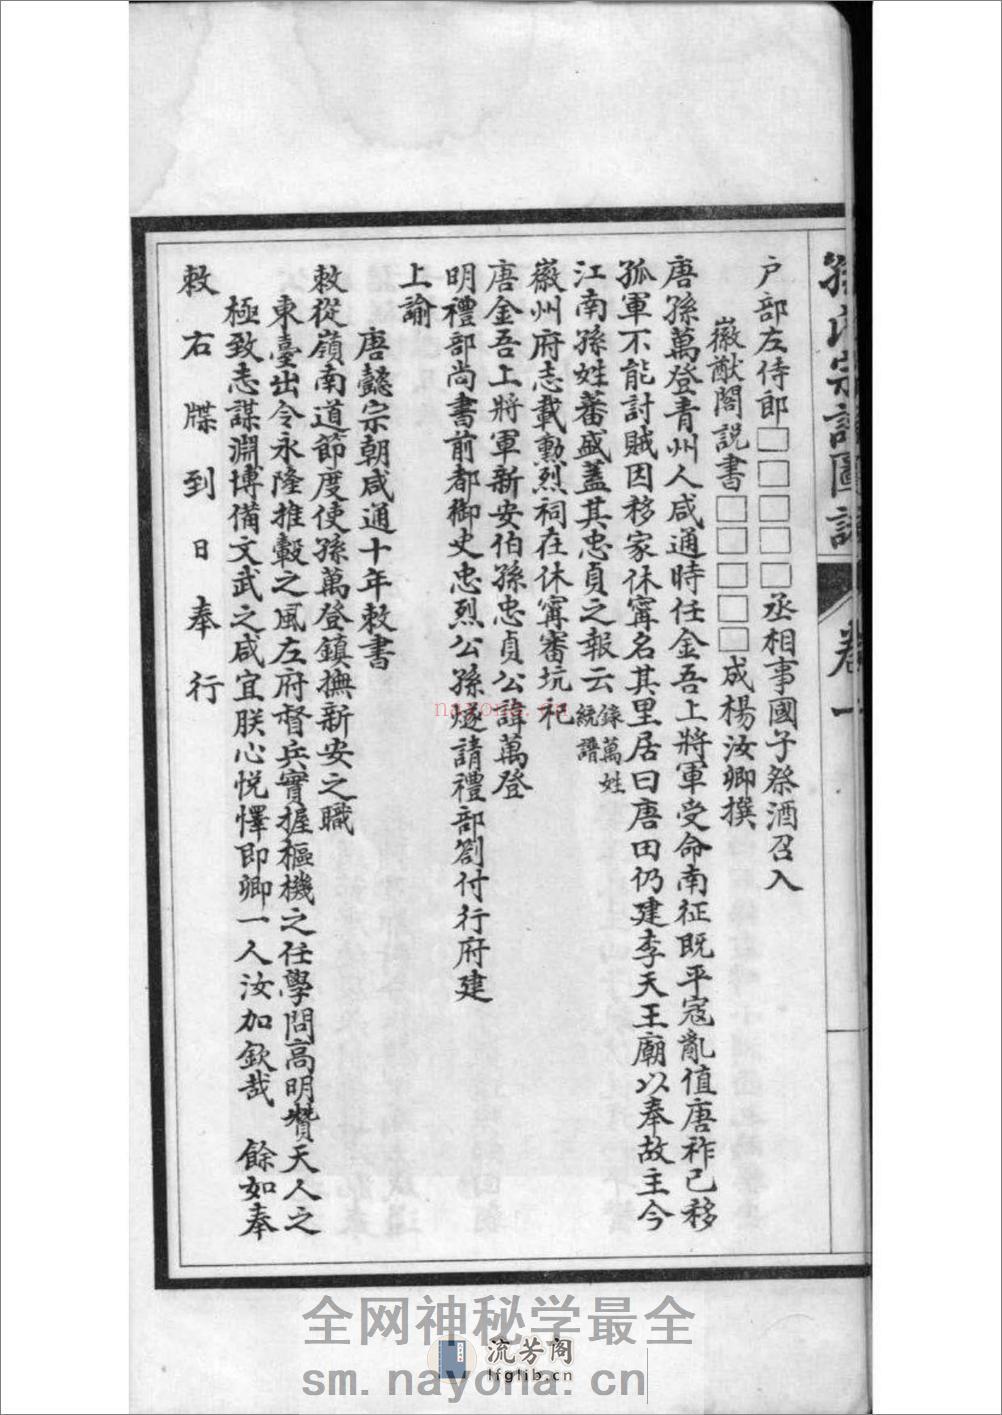 孫氏宗譜圖譜 卷一
户部左侍郎□□□□□丞相事國子祭酒召入
徽猷閣説書□□□□□成楊汝卿撰
唐孫萬登青州人咸通時任金吾上將軍受命南征既平寇亂值唐祚已移
孤軍不能討賊因移家休寧名其里居曰唐田仍建李天王廟以奉故主今
江南孫姓蕃盛蓋其忠貞之報云 錄萬姓統譜
徽州府志載勲烈祠在休寧審坑祀
唐金吾上將軍新安伯孫忠貞公諱萬登
明禮部尚書前都御史忠烈公孫燧請禮部劄付行府建
上諭
唐懿宗朝咸通十年敕書
敕從嶺南道節度使孫萬登鎮撫新安之職
東臺出令永隆推轂之風左府督兵實握樞機之任學問高明贊天人之
極致志謀淵博備文武之咸宜朕心悦懌即卿一人汝加欽哉 餘如奉
敕右牒到日奉行
nayona.cn
全网神秘学最全
流芳阁
lfglib.cn
sm.nayona.cn